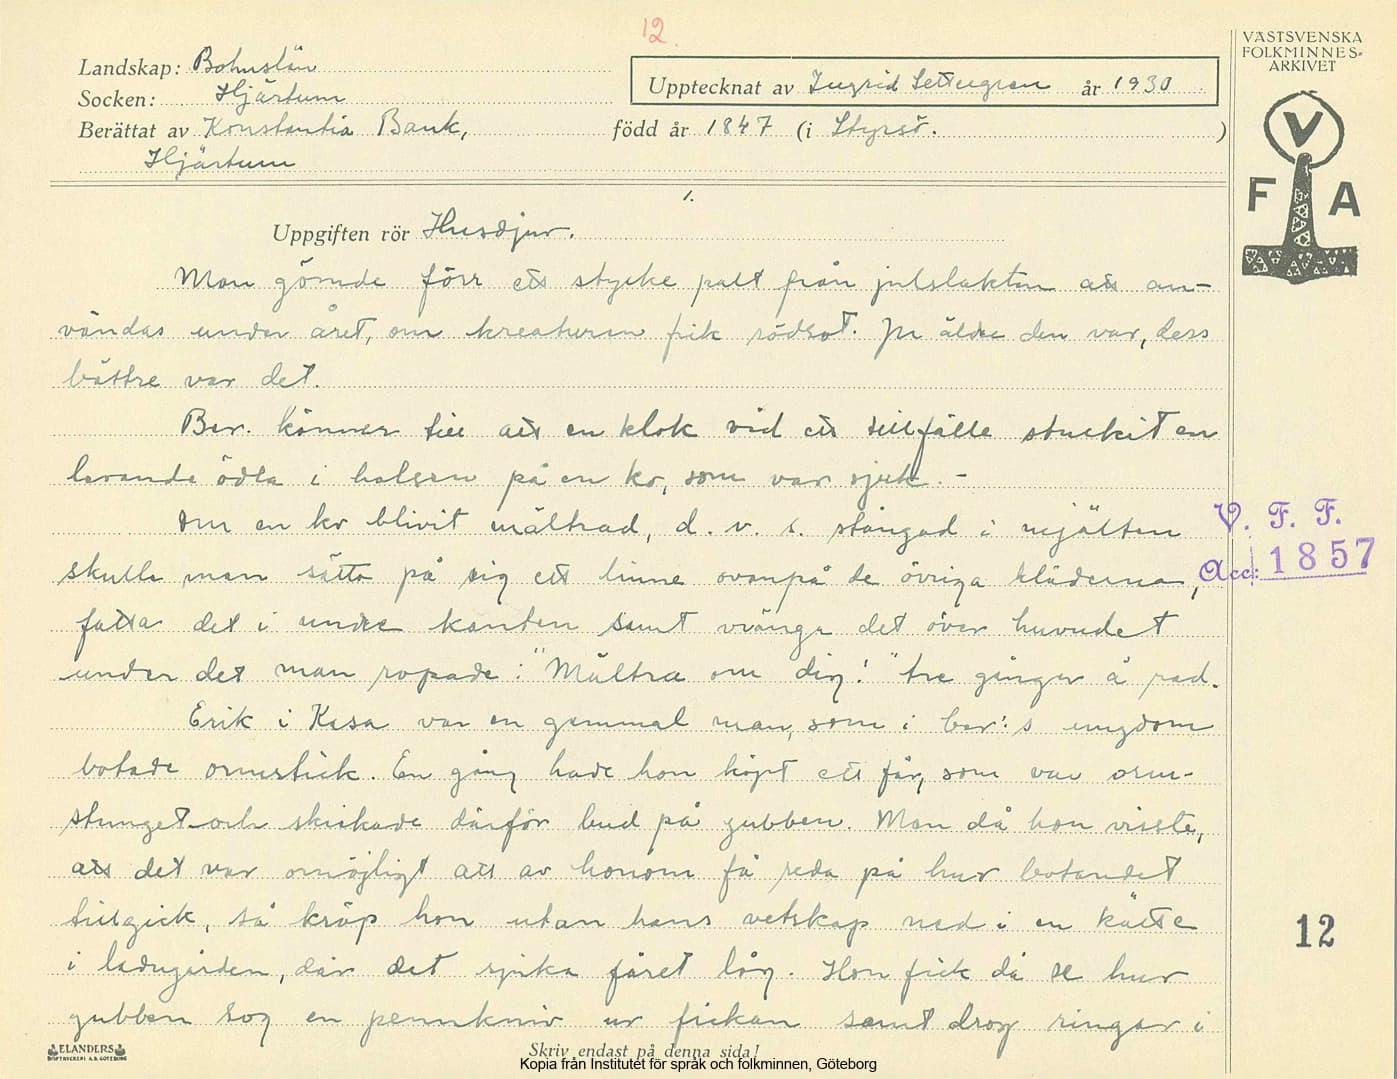 12
VÄSTSVENSKA
FOLKMINNES-
ARKIVET
V
F A
Landskap: Bohuslän
Socken: Hjärtum
Upptecknat av Ingrid Settergren år 1930
Berättat av Konstantia Bank, född år 1847 (i Styrsö. )
Hjärtum
1.
Uppgiften rör Husdjur.
Man gömde förr ett stycke palt från julslakten att an-
vändas under året, om kreaturen fick rödsot. Ju äldre den var, dess
bättre var det.
Ber. känner till att en klok vid ett tillfälle stuckit en
levande ödla i halsen på en ko, som var sjuk. -
Om en ko blivit mältrad, d. v. s. stångad i mjälten
skulle man sätta på sig ett linne ovanpå de övriga kläderna,
fatta det i undre kanten samt svänga det över huvudet
under det man ropade: "Mältra om dig!" tre gånger å rad.
Erik i Kasa var en gammal man, som i ber:s ungdom
botade ormstick. En gång hade hon köpt ett får, som var orm-
stunget och skickade därför bud på gubben. Men då hon visste,
att det var omöjligt att av honom få reda på hur botandet
tillgick, så kröp hon utan hans vetskap ned i en kätte
i ladugården, där det sjuka fåret låg. Hon fick då se hur
gubben tog en pennkniv ur fickan samt drog ringar i
V. F. F.
Acc: 1857
12
ELANDERS
BOKTRYCKERI A.B. GÖTEBORG
Skriv endast på denna sida!
Kopia från Institutet för språk och folkminnen, Göteborg